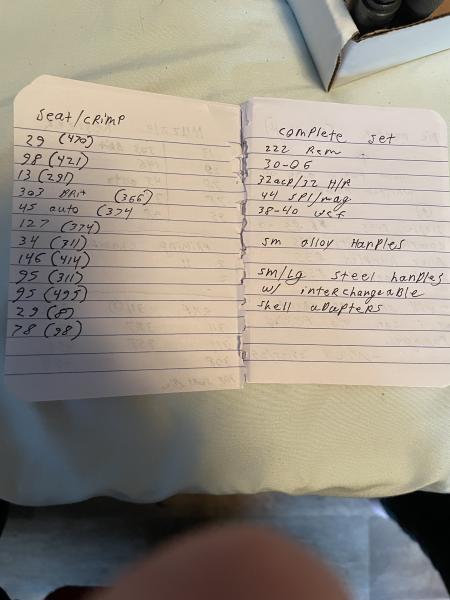 seat/crimp
29 (470)
98 (421)
13 (291)
303 Brit (366)
45 auto (374
127 (374)
34 (311)
146 (414)
95 (311)
95 (495)
29 (87)
78 (98)
complete set
222 Rem
30-06
32acp/32 H/R
44 spl/mag
38-40 wcf
sm alloy Handles
sm/Lg steel handles
w/ interchangeable
shell adapters